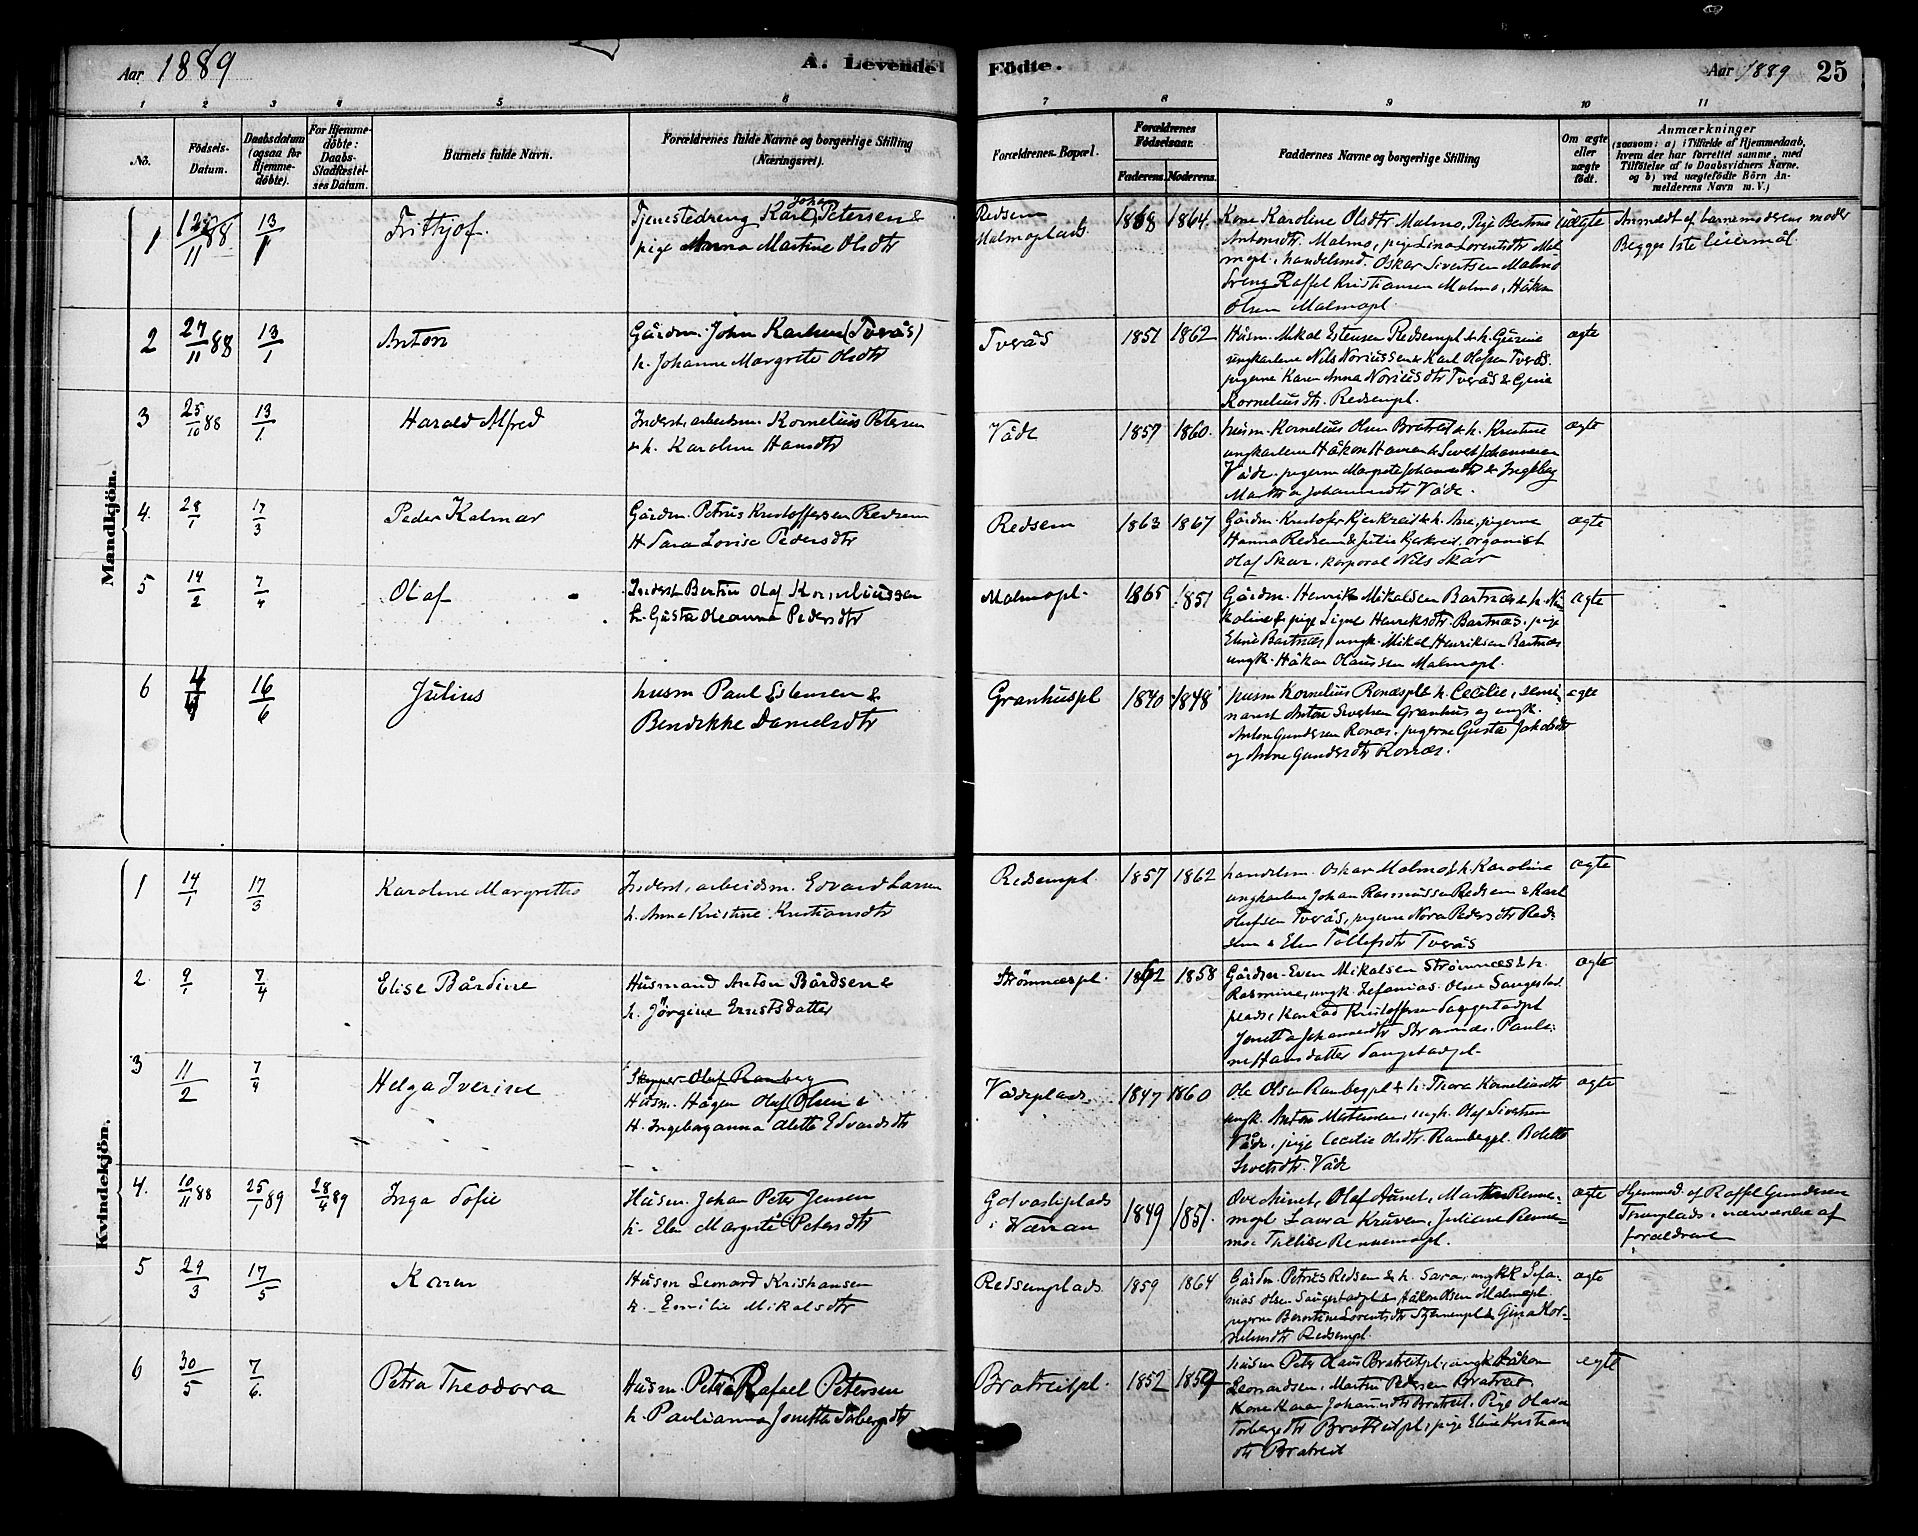 Aar 1889
A. Levende
Födte.
Aar 1889
25
1 2 3 4 5 6
7 8 9 10 11
No.
Födsels-
Datum.
Daabsdatum
(ogsaa for
Hjemme-
döbte).
For Hjemme-
döbte:
Daabs-
Stadfæstel-
ses Datum.
Barnets fulde Navn.
Forældrenes fulde Navne og borgerlige Stilling
(Næringsvei).
Forældrenes Bopæl.
Forældrenes
Födselsaar.
Faderens. Moderens.
Faddernes Navne og borgerlige Stilling
Om ægte
eller
uægte
födt.
Anmærkninger
(saasom: a) i Tilfælde af Hjemmedaab,
hvem der har forrettet samme, med
Tilföielse af to Daabsvidners Navne.
og b) ved uægtefödte Börn An-
melderens Navn m. V.)
Mandkjön.
1
12/11 88
13/1
Frithjof.
Johan
Tjenestedreng Karl Petersen &
pige Anna Martine Olsdtr
Redsem
Malmoplads
1868
1864.
Kone Karoline Olsdtr Malmo, Pige Bertine
Antonsdtr. Malmo, pige Lina Lorentsdtr Mal
mopl., handelsmd. Oskar Sivertsen Malmo
dreng Raffel Kristiansen Malmo, Håkon
Olsen Malmopl.
uægte
Anmeldt af barnemoderens moder
Begges 1ste leiermål.
2
27/11 88
13/1
Anton
Gårdm. John Karlsen (Tverås)
h. Johanne Margrete Olsdtr
Tverås
1851
1862
Husm. Mikal Estensen Redsempl & h. Gurine
ungkarlene Nils Noriussen & Karl Olafsen Tverås
pigerne Karen Anna Noriusdtr Tverås & Gina
Korneliusdtr. Redsempl.
ægte
3
25/10 88
13/1
Harald Alfred
Inderst, arbeidsm. Kornelius Petersen
& h. Karoline Hansdtr
Våde
1857
1860.
husm. Kornelius Olsen Bratreit & h. Kristine
ungkarlene Håkon Hansen & Sivert Johannesen
Våde, pigerne Margrete Johansdtr & Ingebog
Martha Johannesdtr Våde.
ægte
4.
28/1
17/3
Peder Kalmar
Gårdm. Petrus Kristoffersen Redsem
H Sara Lovise Pedersdtr
Redsem
1863
1867
Gårdm. Kristofer Kjerkreit & h. Ane, pigerne
Hanna Redsem & Julie Kjerkreit, organist
Olaf Skar, korporal Nils Skar
ægte
5
14/2
7/4
Olaf
Inderst Bertin Olaf Korneliussen
h. Gusta Oleanna Pedersdtr
Malmopl.
1865
1851
Gårdm. Henrik Mikalsen Bartnæs & h. Ni
koline & pige Signe Henriksdtr Bartnæs, pige
Eline Bartnæs, ungk. Mikal Henriksen Bartnæs
ungk. Håkon Olaussen Malmopl.
ægte
6
16/6
Julius
husm Paul Estensen &
Bendikke Danielsdtr
Granhuspl
1840
1848
husm Kornelius Ronæspl & h. Cecilie, semi
narist Anton Sivertsen Granhus og ungk.
Anton Gundersen Ronæs, pigerne Gusta Jakobsdtr
og Anne Gundersdtr Ronæs.
ægte
Kvindekjön.
1
14/1
17/3
Karoline Margrethe
Inderst, arbeidsm. Edvard Larsen
h. Anna Kristine Kristiansdtr
Redsempl.
1857
1862
handelsm. Oskar Malmo & h. Karoline
ungkarlene Johan Rasmussen Redsem & Karl
Olufsen Tverås, pigerne Nora Pedersdtr Red-
sem & Elen Tollefsdtr Tverås
ægte
2.
9/1
7/4
Elise Bårdine
Husmand Anton Bårdsen &
h. Jørgine Ernstsdatter
Strömnæspl.
1862
1858
Gårdm. Even Mikalsen Strömnæs & h.
Rasmine, ungk. Zefanias Olsen Saugestad
plads, Konrad Kristoffersen Saugestadpl
Jonetta Johannesdtr Strömnæs. Pauli-
ne Hansdatter Saugestadpl.
ægte
3
11/2
7/4
Helga Iverine
Skipper Olaf Ramberg
Husm. Hågen Olaf Olsen &
H. Ingeborganna Alette Edvardsdtr
Vådeplads
1847
1860
Ole Olsen Rambergpl & h. Thora Korneliusdtr
ungk. Anton Martinsen, ungk. Olaf Sivertsen
Våde, pige Cecilie Olsdtr. Rambergpl. Bolette
Sivertsdtr. Våde
ægte
4.
10/11 88
25/1 89
28/4 89
Inga Sofie
Husm. Johan Peter Jensen
h. Elen Margrete Petersdtr
i Værran
1849
1851.
Ove Aunet, Olaf Aunet, Martin Renne-
mopl Laura Kruven, Juliane Renne-
mo Rennemopl.
ægte
Hjemmed. af Raffel Gundersen
i nærværelse af
forældrene
5
29/3
17/5
Karen
Husm Leonard Kristiansen
h. Emilie Mikalsdtr
Redsemplads
1859
1864
Gårdm. Petrus Redsem & h. Sara, ungk Sefa-
nias Olsen Saugestadpl & Håkon Olsen Malmopl.
pigerne Berntine Lorentsdtr & Gina Kor-
neliusdtr Redsempl.
ægte
6
30/5
7/6.
Petra Theodora
Husm. Peter Rafael Petersen
h. Paulianna Jonetta Torbergsdtr
Bratreitpl.
1852
husm Peter Olaus Bratreitpl, ungk Håkon
Leonardsen, Martin Pedersen Bratreit,
Kone Karen Johansdtr Bratreit, Pige Olava
Torbergsdtr Bratreitpl, pige Eline Kristians
dtr Bratreit
ægte